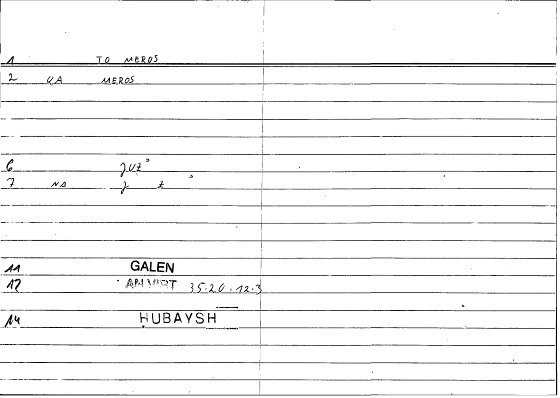 1 TO MEROS
2 QA MEROS
6 ǧuz'
7 NA ǧ z
11 GALEN
12 35.20.12.3
14 HUBAYSH